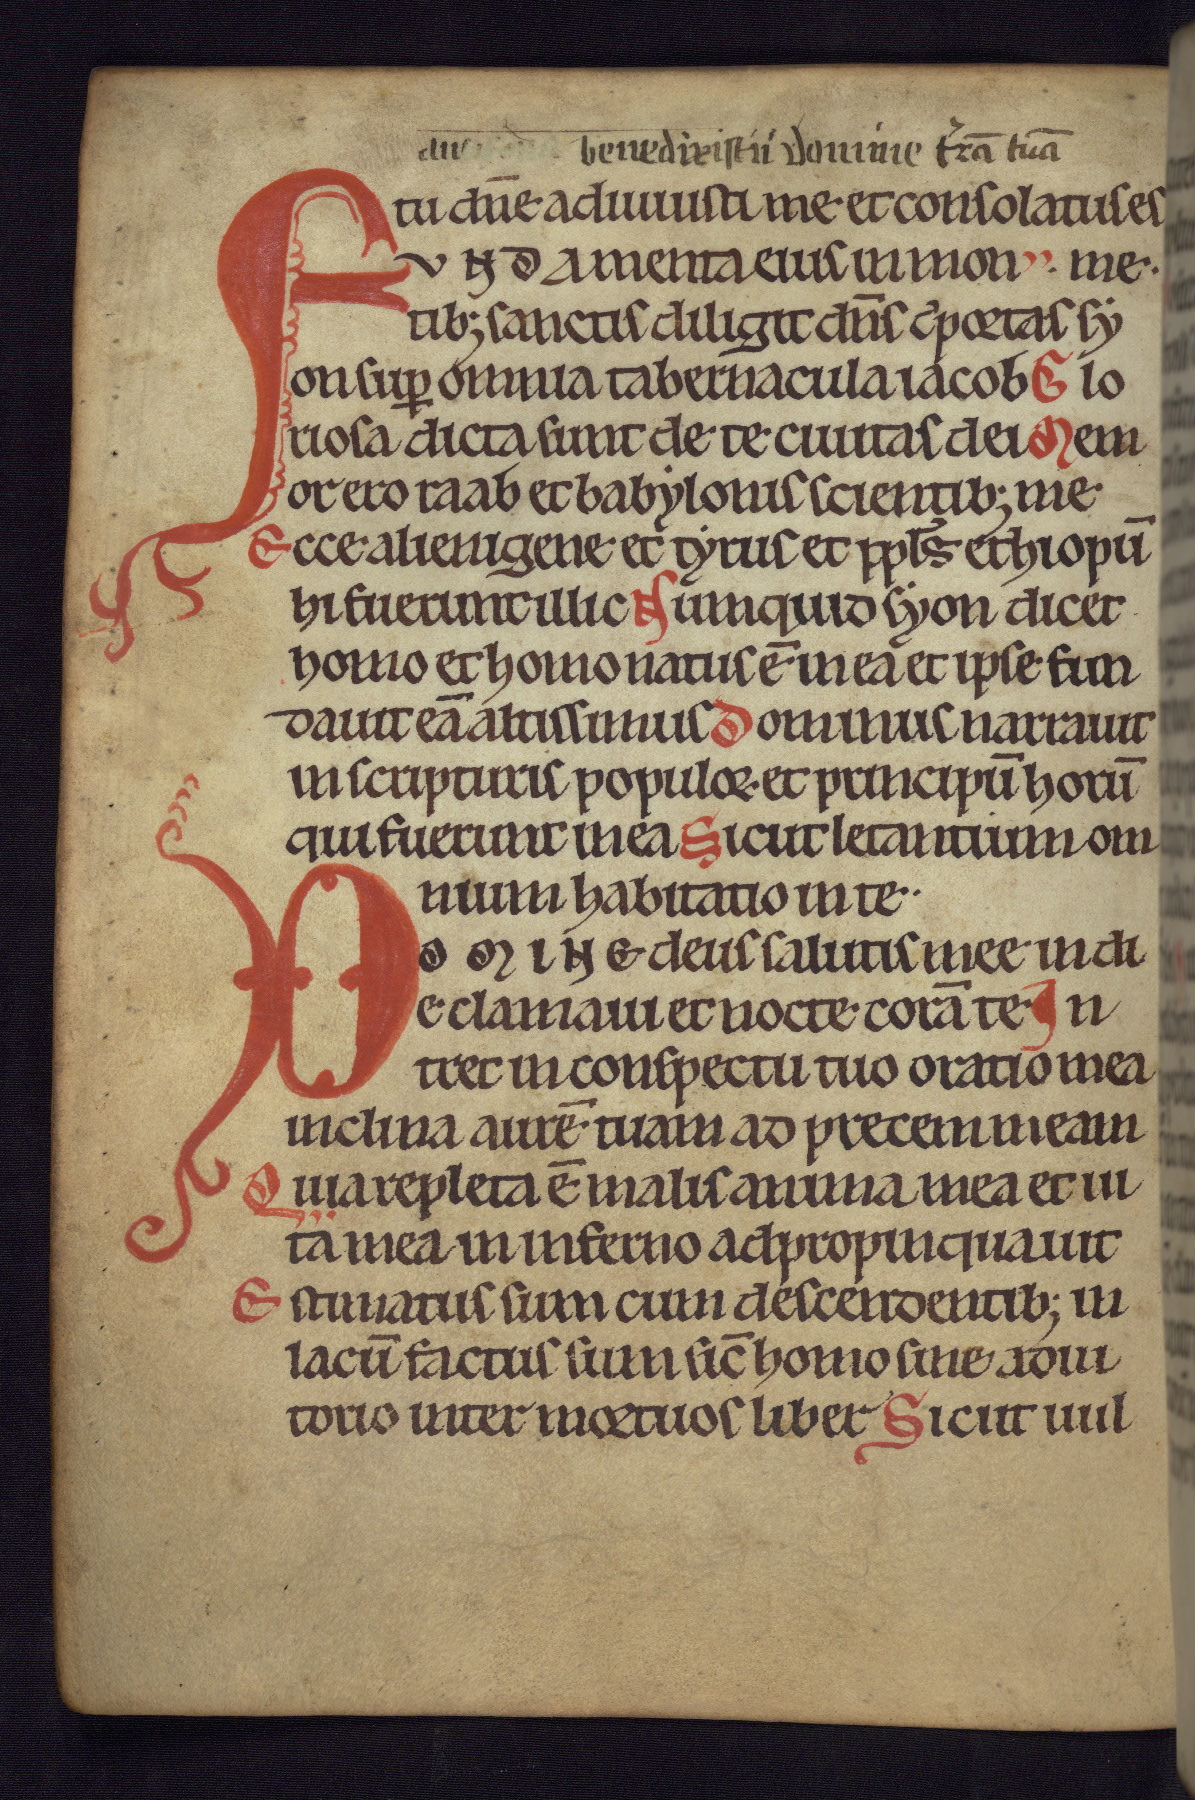 benedixisti domine t̄rā tuā
tu dn̄e adiuuisti me et consolatus es
FVNDAmenta eius in mon me·
tib; sanctis diligit dn̄s portas sy
on sup̱ omnia tabernacula iacob Glo
riosa dicta sunt de te ciuitas dei Mem
or ero raab et babylonis scientib; me
Ecce alienigene et tyrus et ppl̄s ethiopū
hi fuerunt illic Numquid syon dicet
homo et homo natus ē in ea et ipse fun
dauit eā altissimus Dominus narrauit
in scripturis populoꝝ et principū horū
qui fuerunt in ea Sicut letantium om
nium habitatio in te··
DOMINE deus salutis mee in di
e clamaui et nocte corā te In
tret in conspectu tuo oratio mea
inclina aurē tuam ad precem meam
Quia repleta ē malis anima mea et ui
ta mea in inferno adpropinquauit
Estimatus sum cum descendentib; in
lacū factus sum sic̄ homo sine adiu
torio inter mortuos liber Sicut uul